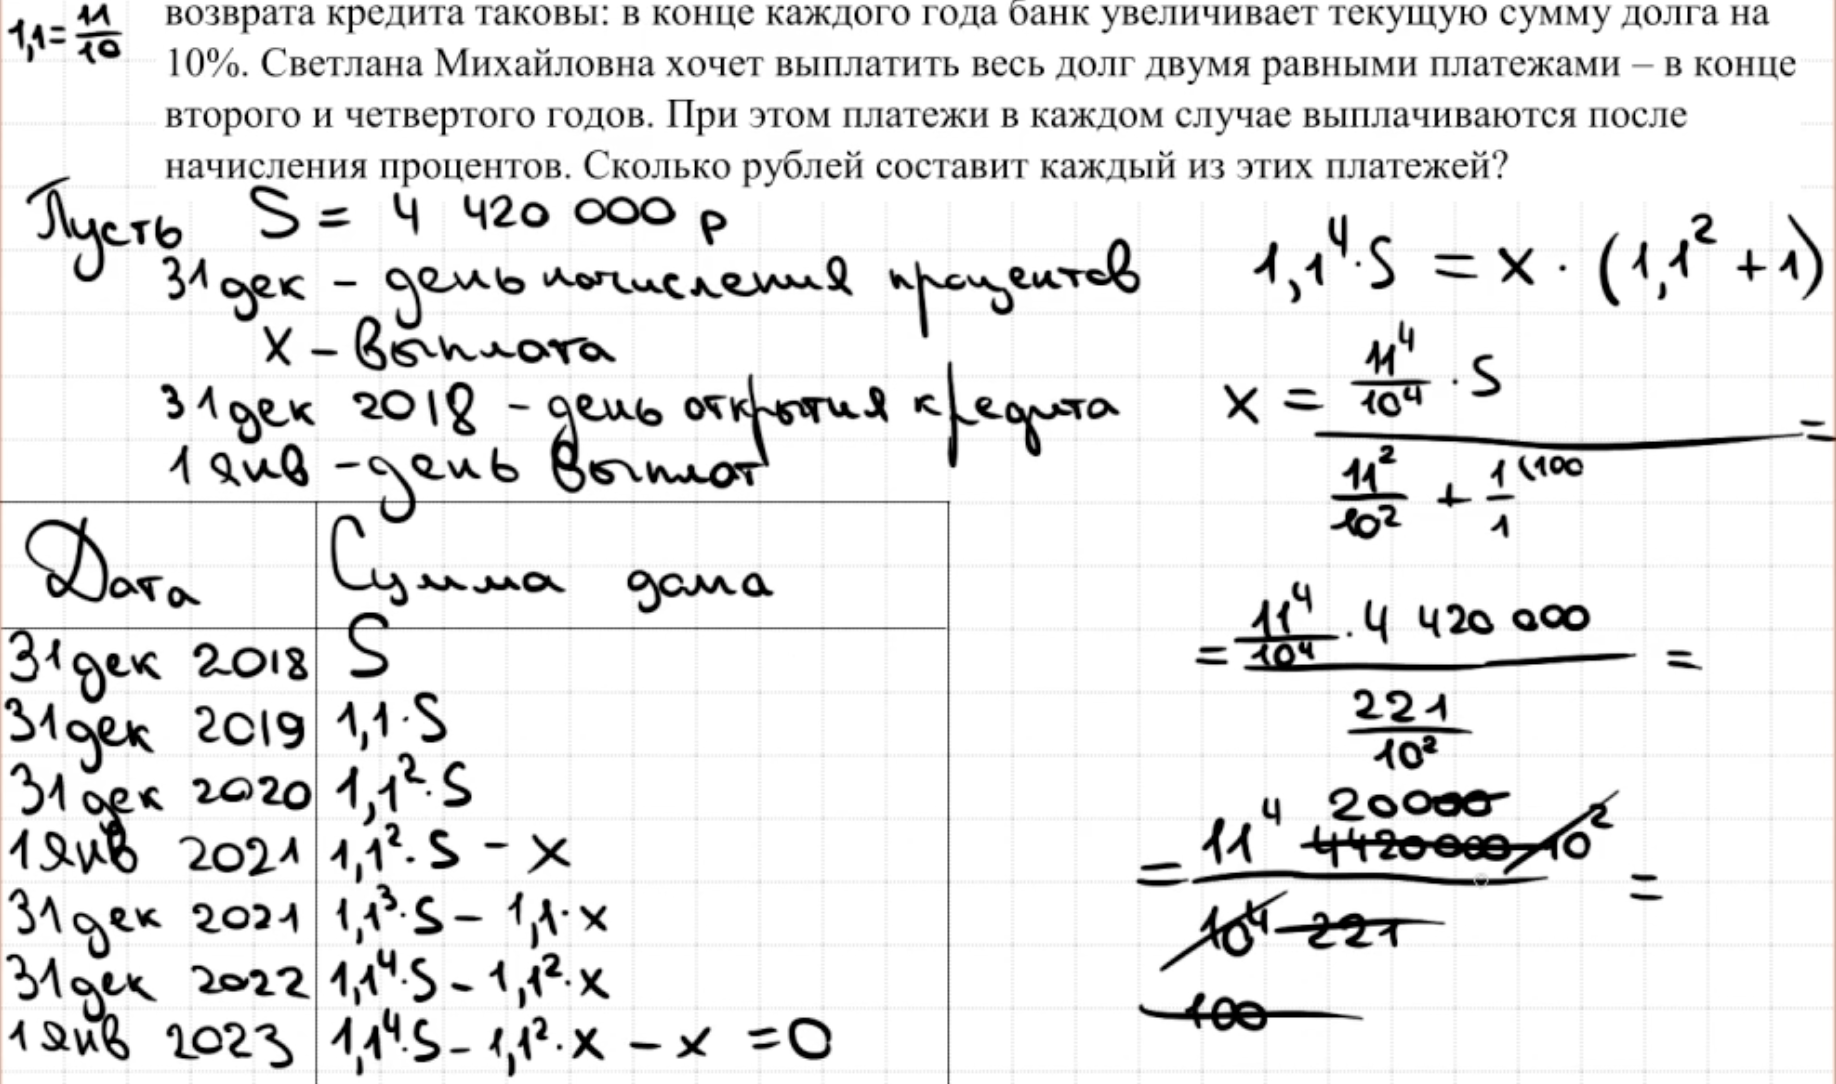 1,1 = 11/10
возврата кредита таковы: в конце каждого года банк увеличивает текущую сумму долга на
10%. Светлана Михайловна хочет выплатить весь долг двумя равными платежами – в конце
второго и четвертого годов. При этом платежи в каждом случае выплачиваются после
начисления процентов. Сколько рублей составит каждый из этих платежей?
Пусть S = 4 420 000 р
31 дек – день начисления процентов
x – выплата
31 дек 2018 – день открытия кредита
1 янв – день выплат
Дата | Сумма долга
31 дек 2018 | S
31 дек 2019 | 1,1·S
31 дек 2020 | 1,1²·S
1 янв 2021 | 1,1²·S – x
31 дек 2021 | 1,1³·S – 1,1·x
31 дек 2022 | 1,1⁴·S – 1,1²·x
1 янв 2023 | 1,1⁴·S – 1,1²·x – x = 0
1,1⁴·S = x·(1,1² + 1)
x = 11⁴/10⁴ · S
=
11²/10² + 1/1 (100
= 11⁴/10⁴ · 4 420 000 =
221/10²
20000
= 11⁴ 4420000 10² =
10⁴ 221
100